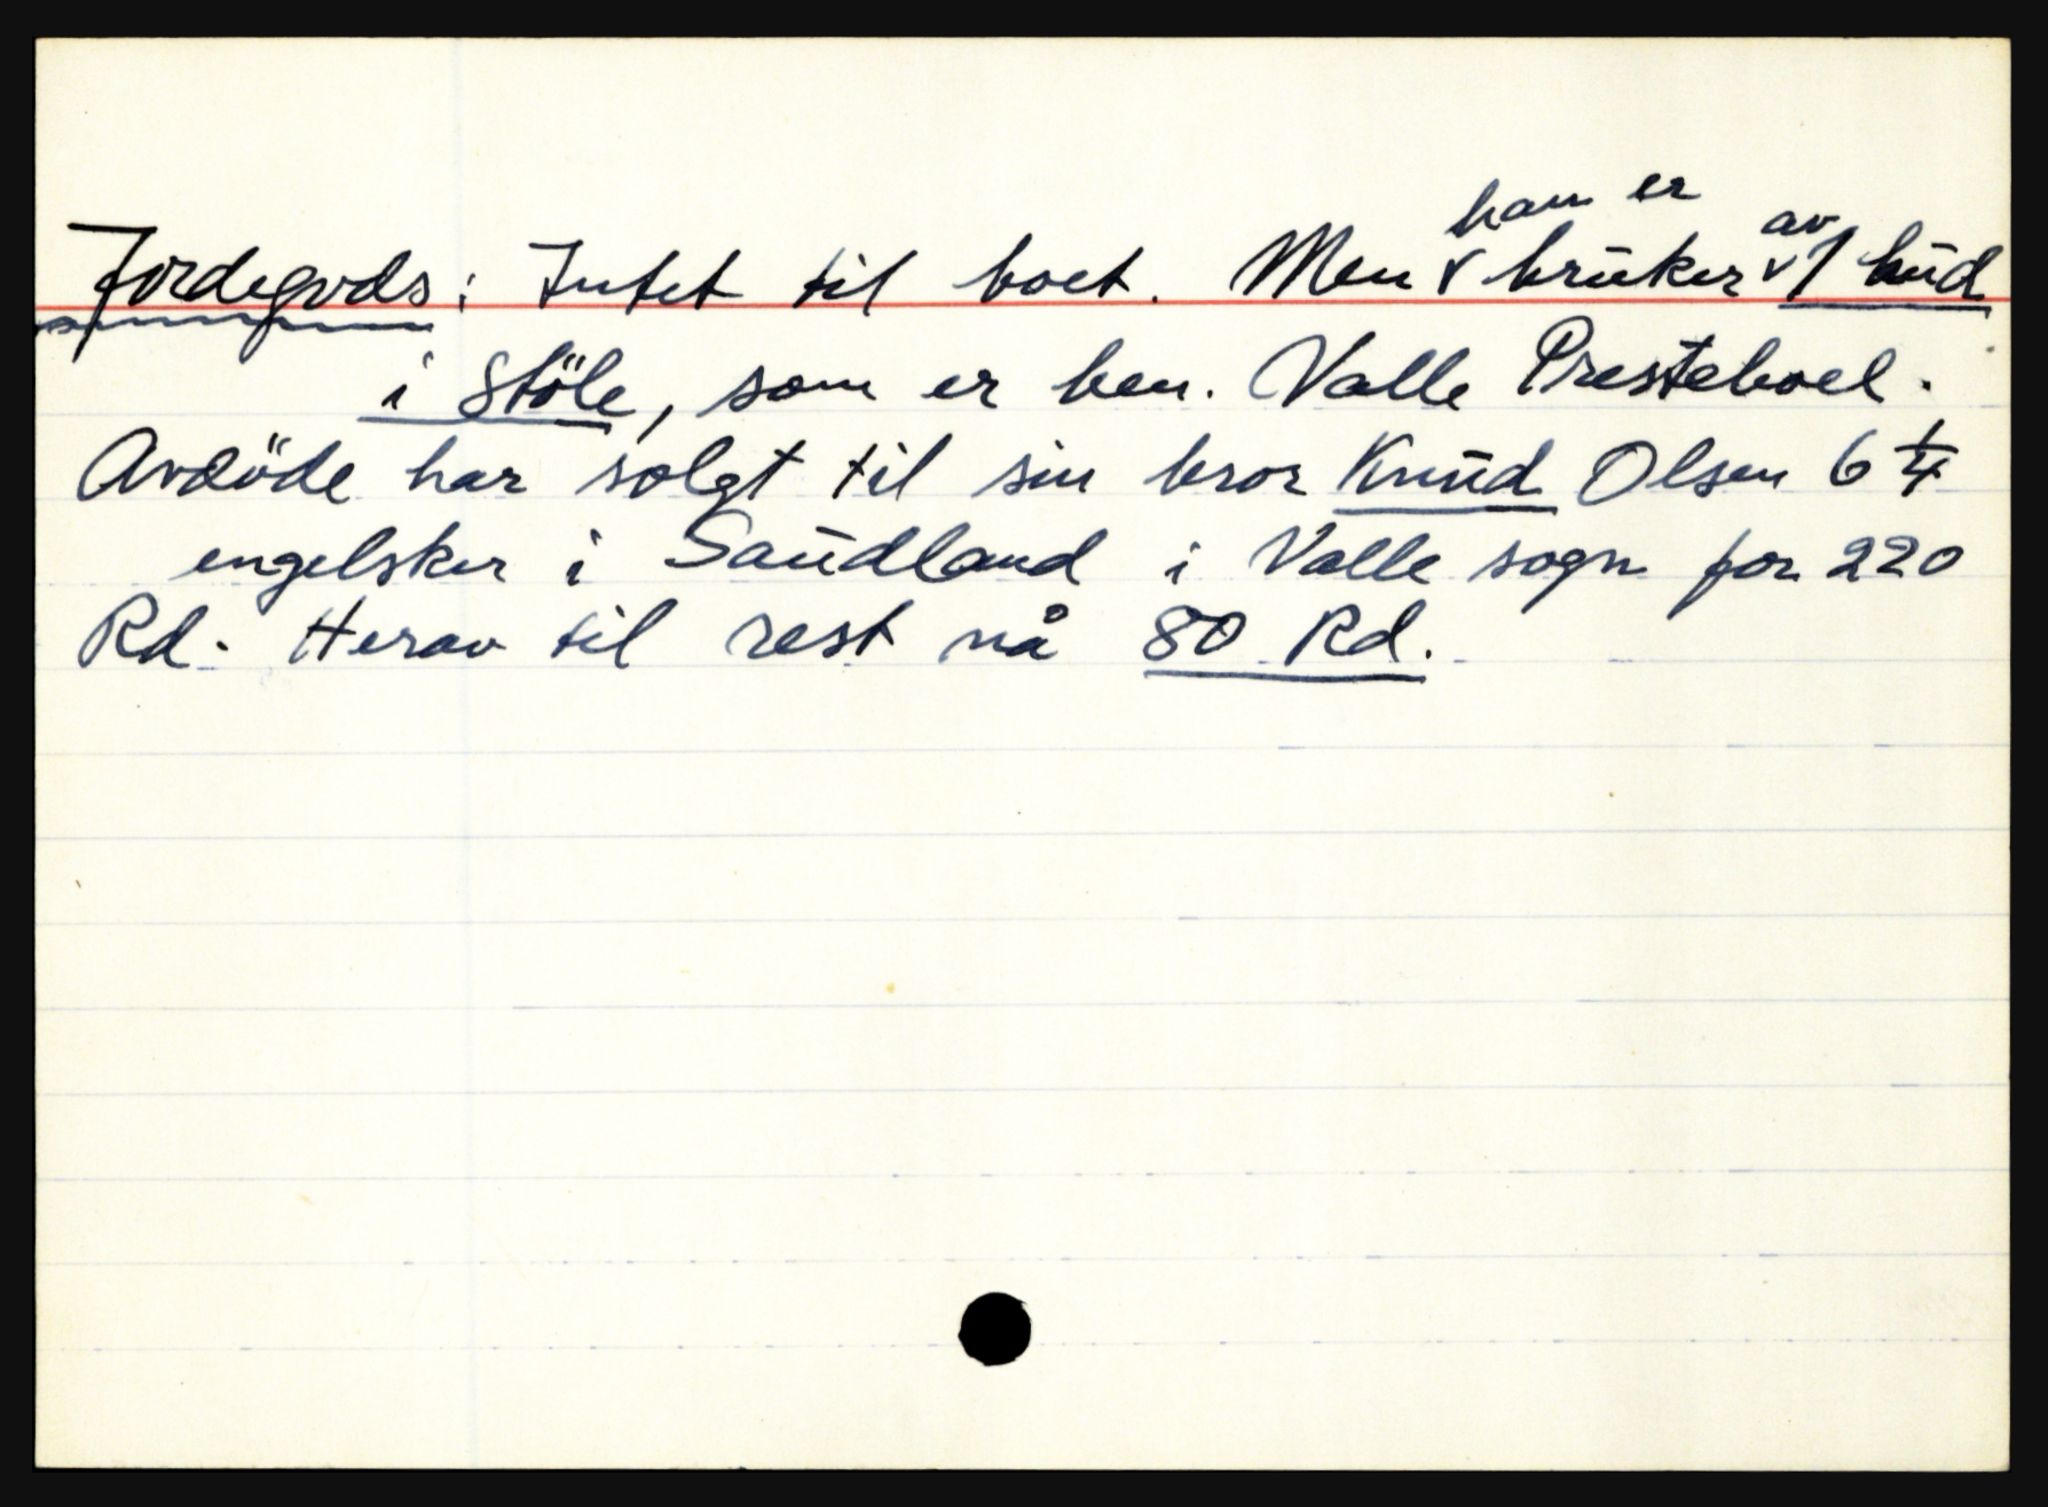 Jordegods: Intet til boet. Men han er bruker av 1 hud
i Stöle, som er ben. Valle Presteboel.
Avdöde har solgt til sin bror Knud Olsen 6 1/4
engelsker i Saudland i Valle sogn for 220
Rd. Herav til rest nå 80 Rd.